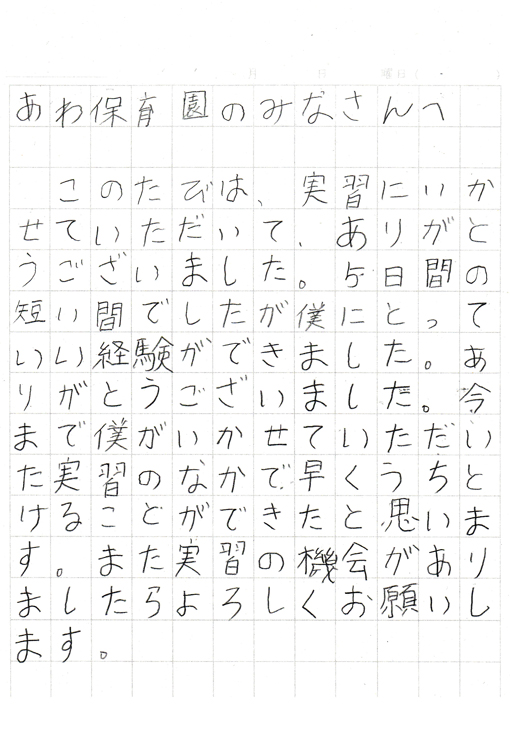 月 日 曜日( )
あわ保育園のみなさんへ
このたびは、実習にいか
せていただいて、ありがと
うございました。5日間の
短い間でしたが僕にとって
いい経験ができました。あ
りがとうございました。今
まで僕がいかせていただい
た実習のなかで早くうちと
けることができたと思いま
す。また実習の機会があり
ましたらよろしくお願いし
ます。